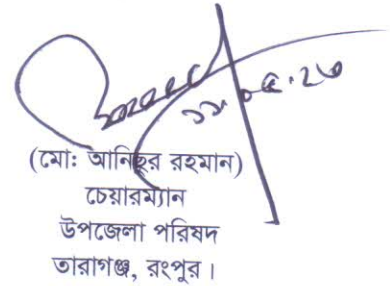 (মো: আনিছুর রহমান)
চেয়ারম্যান
উপজেলা পরিষদ
তারাগঞ্জ, রংপুর।